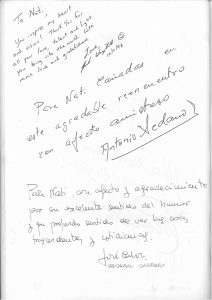 To Nati,
You inspire my heart
and
all your love, talent and light
you bring into the world. With
more love and gratefulness
Para Nati Cañadas en
este agradable reencuentro
con afecto amistoso
Antonio
Para Nati, con afecto y agradecimiento
por su excelente sentido del humor
y que profundo sentido de ver las cosas
trascendentes y cotidianas.
José